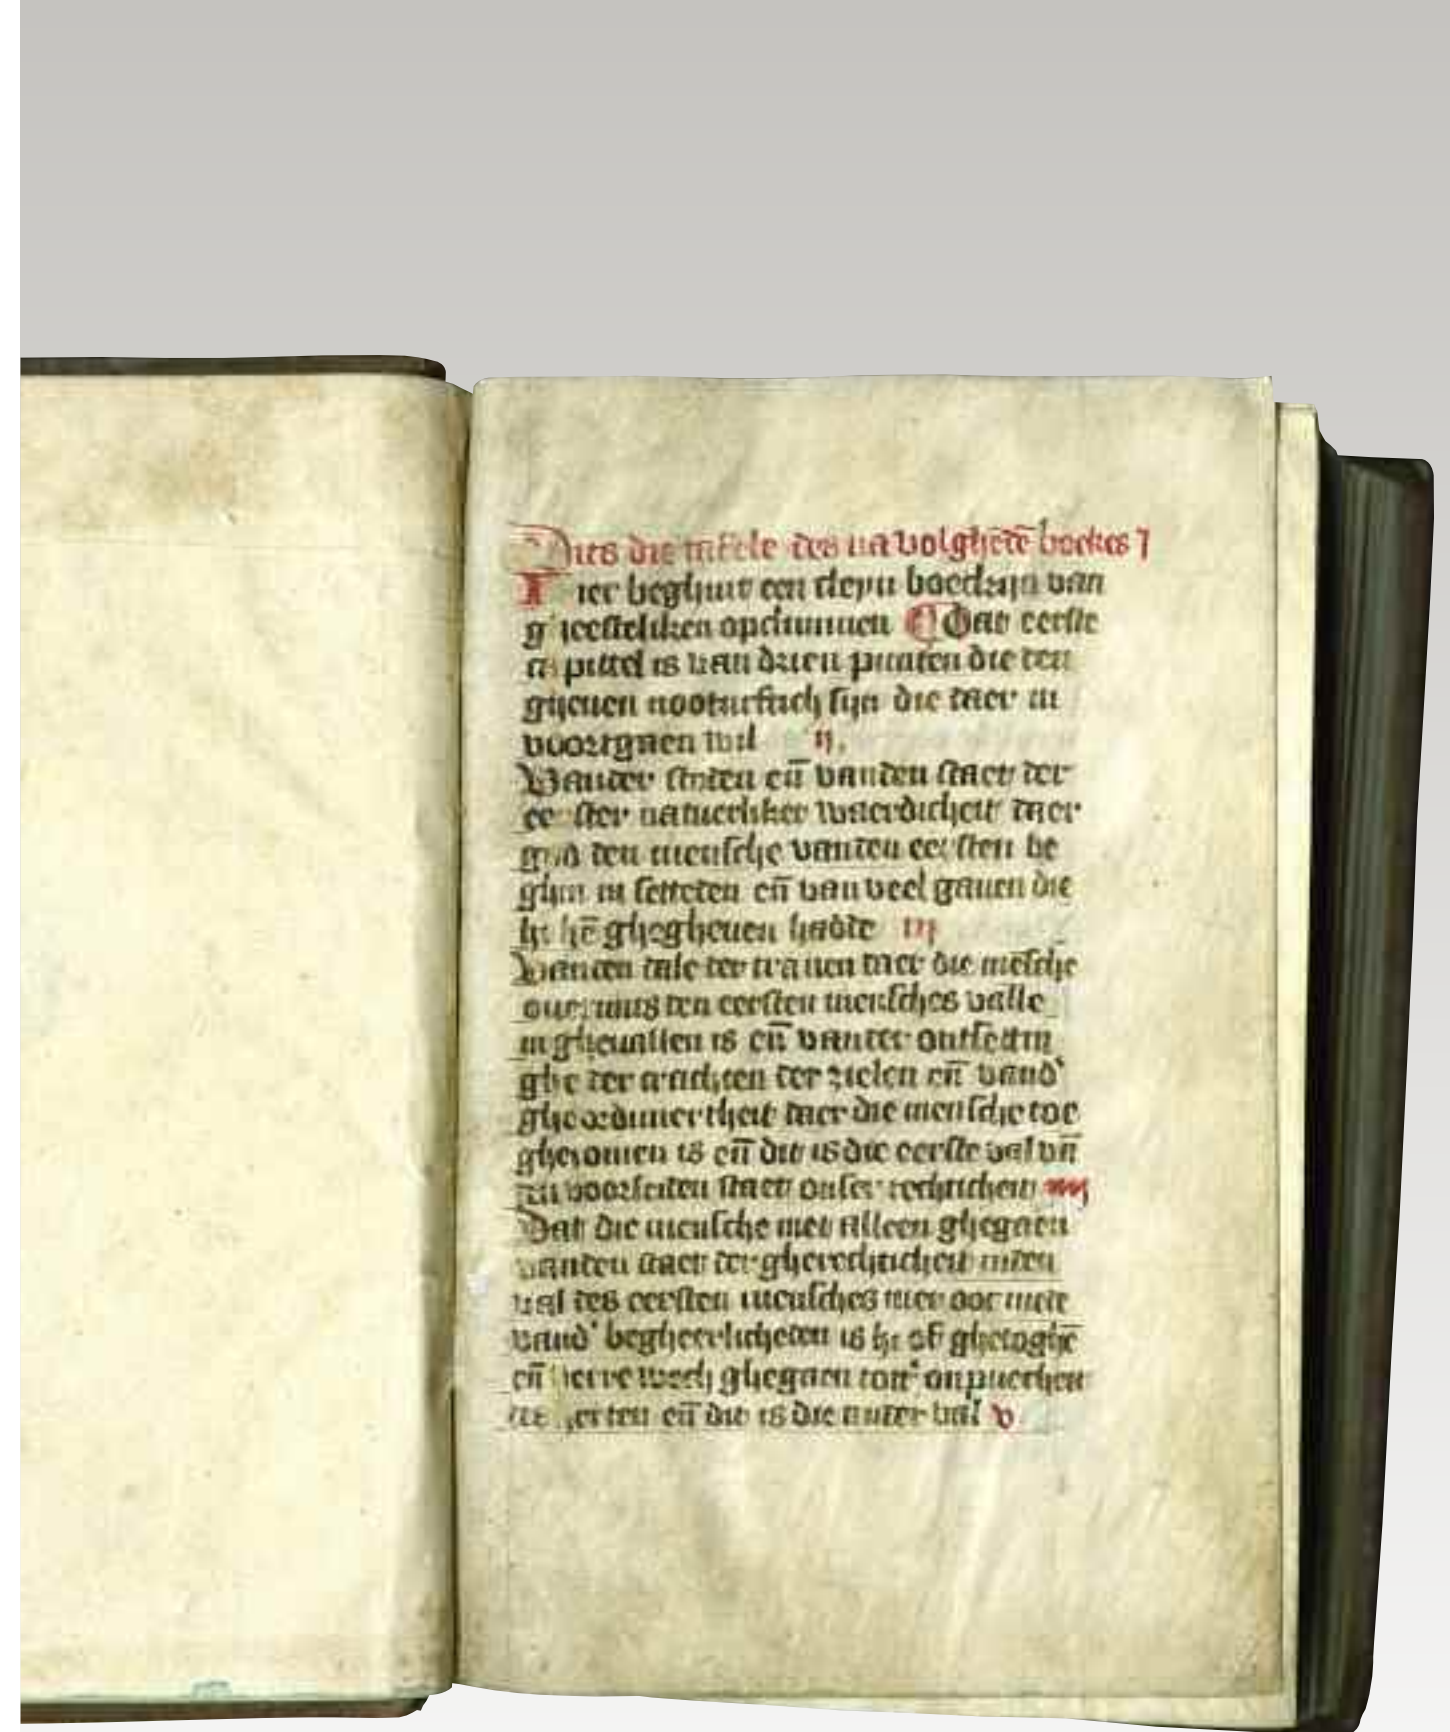 Dits die tafele des na volghēdē boekes j
Hier beghint een cleyn boecxkijn van
gheesteliken opclimmen Dat eerste
capittel is van drien punten die den
ghenen nooturftich sijn die daer in
voortgaen wil ij.
Vander steden eñ vanden staet der
eerster natuerliker waerdicheit daer
god den mensche vanden eersten be
ghin in settede eñ van veel gauen die
hi hē ghegheuen hadde iij
Vanden dale der tranen daer die mēsche
ouermits den eersten mensches valle
in gheuallen is eñ vander ontsettin
ghe der crachten der zielen eñ vand'
gheordineertheit daer die mensche toe
ghecomen is eñ dit is die eerste val vā
den voorseiden staet onser rechticheit iiij
Dat die mensche niet alleen ghegaen
vanden staet der gherechticheit mitten
val des eersten mensches mer ooc mede
vand' begheerlicheden is hi af ghetoghē
eñ verre wech ghegaen totter onpuerheit
des herten eñ dit is die ander val v